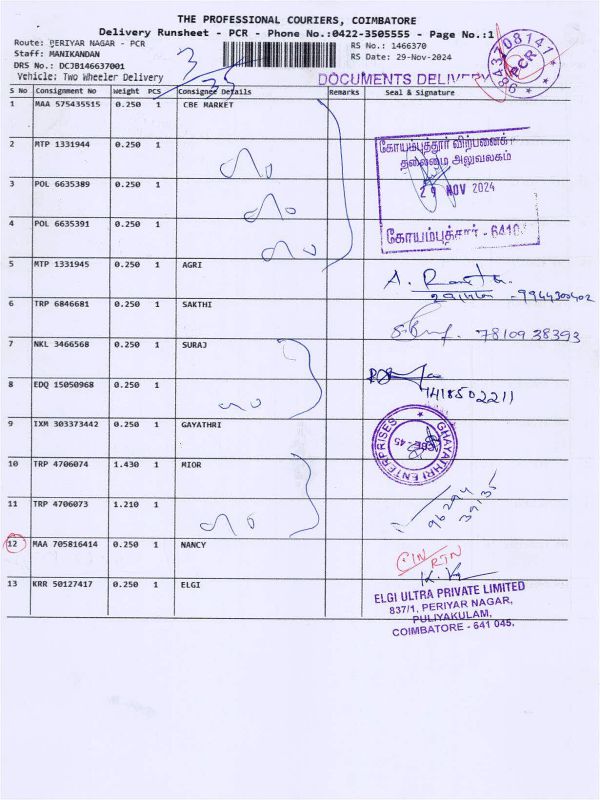 THE PROFESSIONAL COURIERS, COIMBATORE
Delivery Runsheet - PCR - Phone No.:0422-3505555 - Page No.:1
Route: PERIYAR NAGAR - PCR
RS No.: 1466370
Staff: MANIKANDAN
RS Date: 29-Nov-2024
DRS No.: DCJB146637001
Vehicle: Two Wheeler Delivery
DOCUMENTS DELIVERY
PCR
S No Consignment No Weight PCS Consignee Details Remarks Seal & Signature
1 MAA 575435515 0.250 1 CBE MARKET
2 MTP 1331944 0.250 1
கோயம்புத்தூர் விற்பனைக்
தலைமை அலுவலகம்
3 POL 6635389 0.250 1
29 NOV 2024
4 POL 6635391 0.250 1
கோயம்புத்தூர் - 6410
5 MTP 1331945 0.250 1 AGRI
9944300402
6 TRP 6846681 0.250 1 SAKTHI
7810938393
7 NKL 3466568 0.250 1 SURAJ
8 EDQ 15050968 0.250 1
9418502211
9 IXM 303373442 0.250 1 GAYATHRI
GHAYATHRI ENTERPRISES
CBE - 45
10 TRP 4706074 1.430 1 MIOR
11 TRP 4706073 1.210 1
96294
39135
12 MAA 705816414 0.250 1 NANCY
RTN
13 KRR 50127417 0.250 1 ELGI
ELGI ULTRA PRIVATE LIMITED
837/1, PERIYAR NAGAR,
PULIYAKULAM,
COIMBATORE - 641 045.